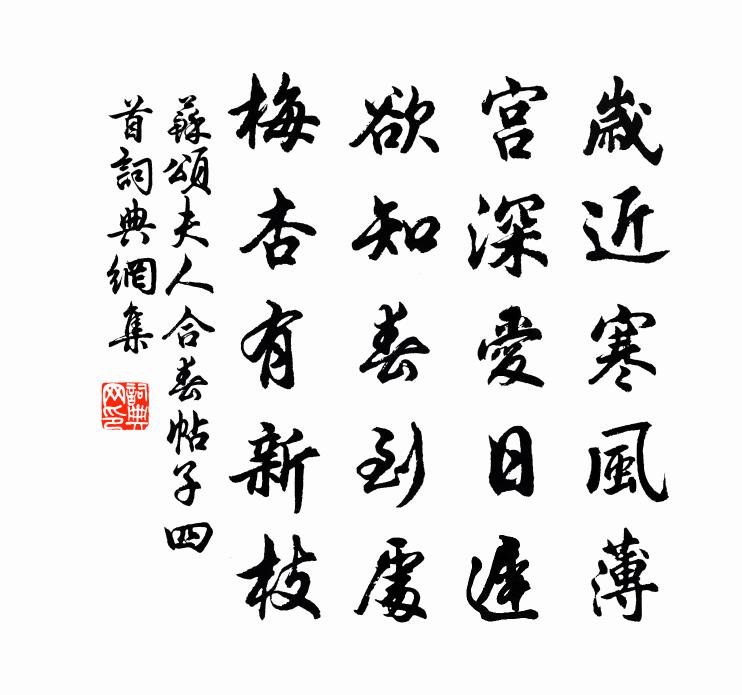 歲近寒風薄
宮深愛日遲
欲知春到處
梅杏有新枝
蘇頌夫人合春帖子四
首詞典網集
詞典网印